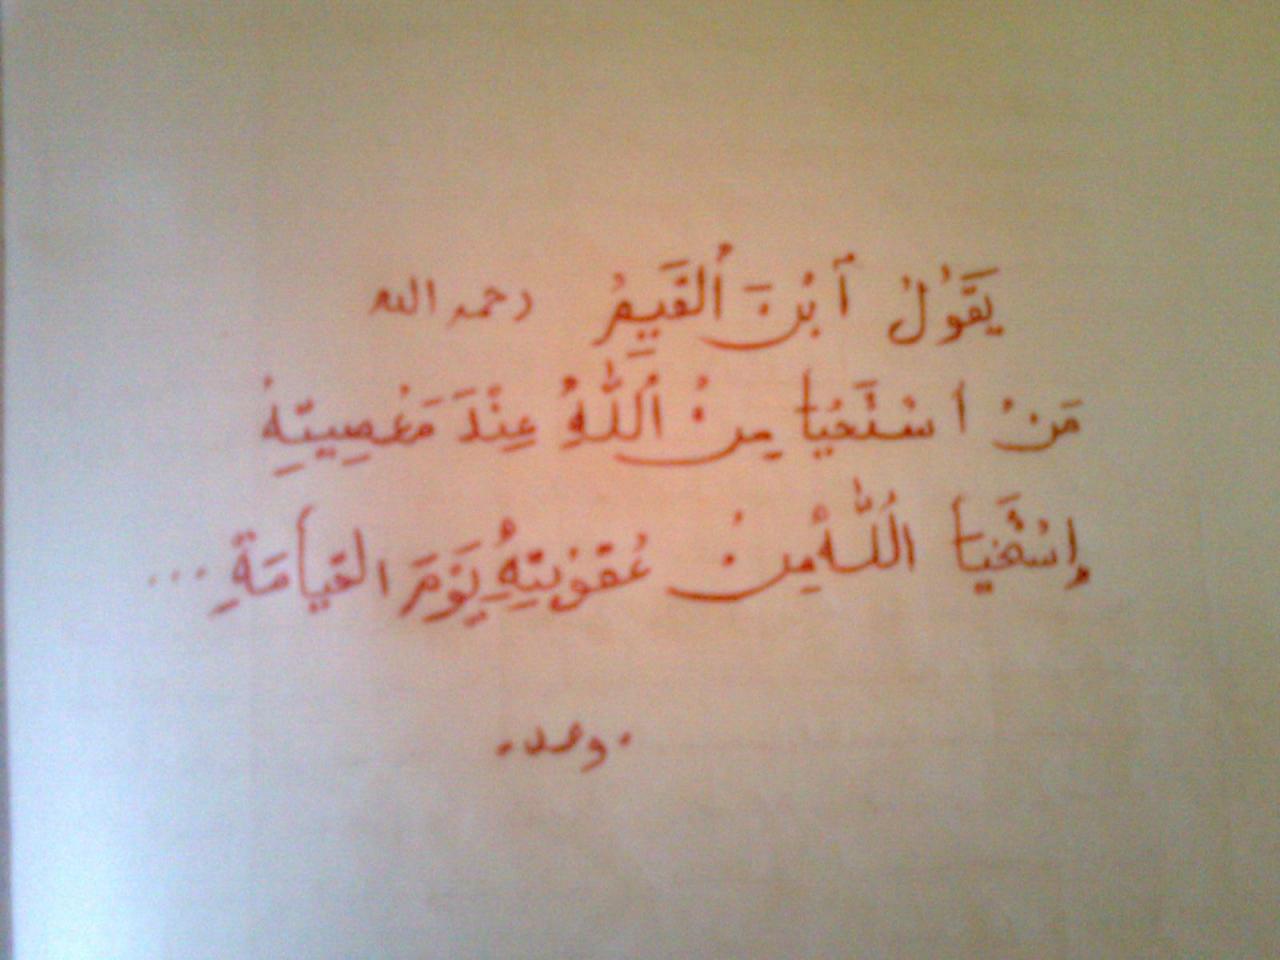 يَقُولُ ٱبْنَ ٱلْقَيِّمُ رحمه الله
مَنْ اسْتَحْيَا مِنْ ٱللَّهِ عِنْدَ مَعْصِيَتِهِ
إِسْتَحْيَا اللَّهُ مِنْ عُقُوبَتِهِ يَوْمَ القِيَامَةِ ...